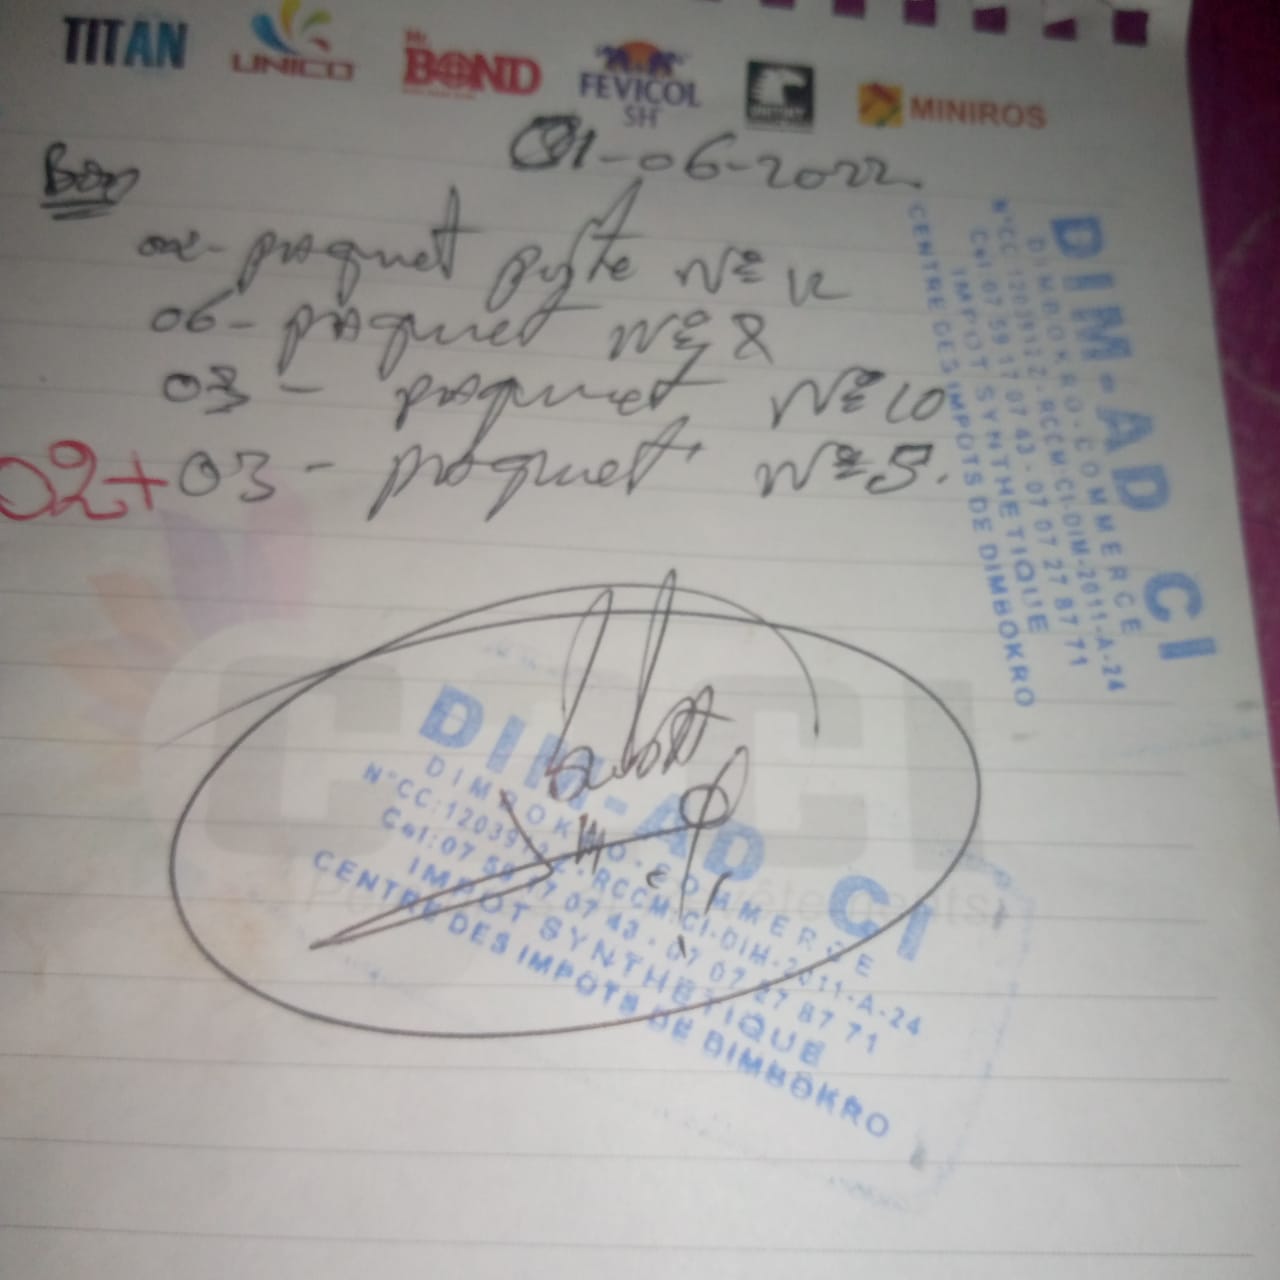 TITAN UNICO Mr. BOND FEVICOL SH MINIROS
01-06-2022
Bon
02- paquet pyte N° 12
06- paquet N° 8
03 - paquet N° 10
02+03 - paquet N° 5.
DIM-AD CI
DIMBOKRO-COMMERCE
RCCM:CI-DIM-2011-A-24
Cel:07 59 17 07 43 - 07 07 27 87 71
IMPOT SYNTHETIQUE
CENTRE DES IMPOTS DE DIMBOKRO
DIM-AD CI
DIMBOKRO-COMMERCE
RCCM:CI-DIM-2011-A-24
Cel:07 59 17 07 43 - 07 07 27 87 71
IMPOT SYNTHETIQUE
CENTRE DES IMPOTS DE DIMBOKRO